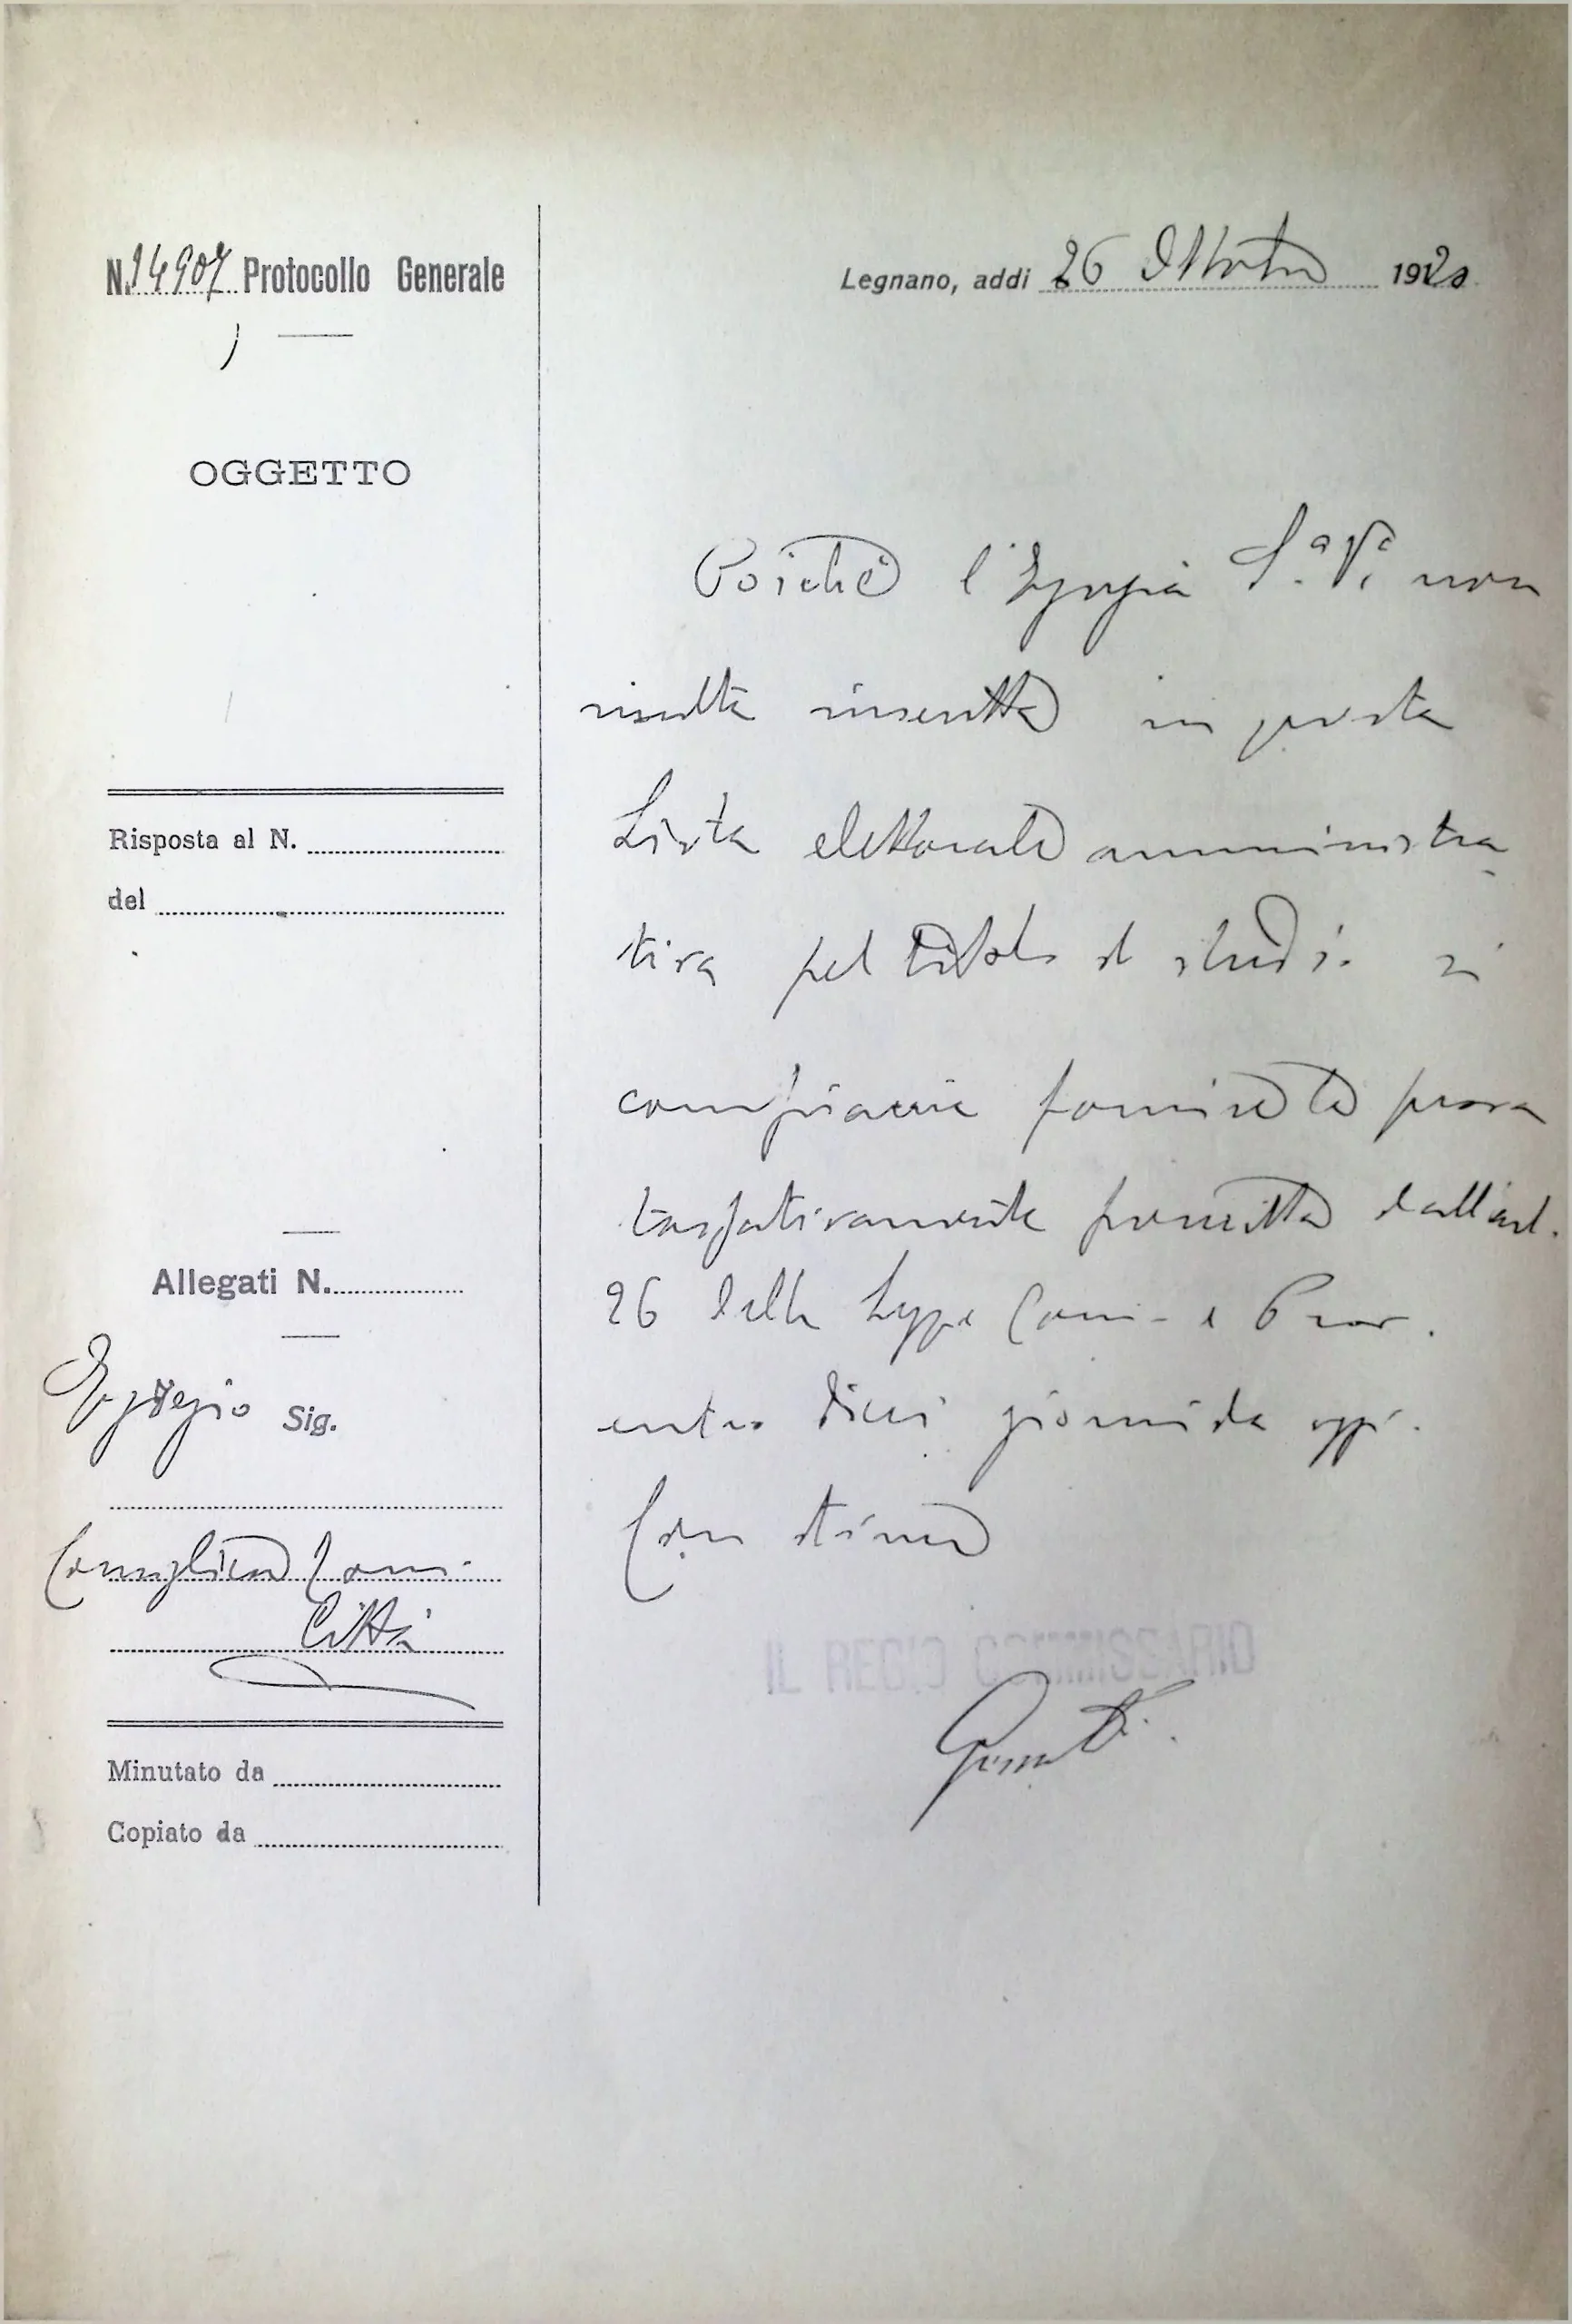 N. 14907 Protocollo Generale
OGGETTO
Risposta al N.
del
Allegati N.
Egregio Sig.
Consigliere Com.
Città
Minutato da
Copiato da
Legnano, addi 26 Ottobre 1920
Poichè l'Egregia S.a V.a non
risulta inscritta in questa
Lista elettorale amministra
tiva pel titolo di studi. si
compiaccia fornire la prova
tassativamente prescritta dall'art.
26 della Legge Com. e Prov.
entro dieci giorni da oggi.
Con stima
IL REGIO COMMISSARIO